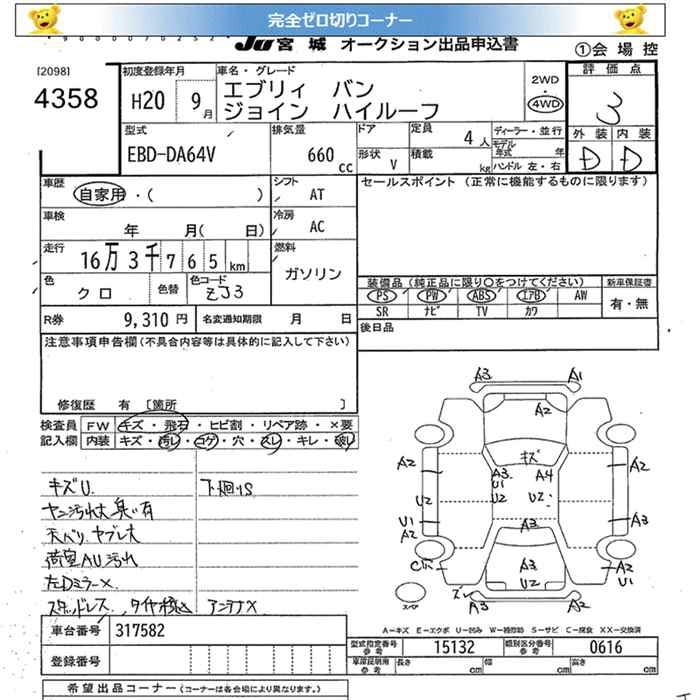 完全ゼロ切りコーナー
JU宮城 オークション出品申込書
①会場控
[2098]
4358
初度登録年月
H20 9月
車名・グレード
エブリィ バン
ジョイン ハイルーフ
2WD
・
4WD
評価点
3
外装 内装
D D
型式
EBD-DA64V
排気量
660 cc
ドア
形状 V
定員 4人
積載 kg
ディーラー・並行
モデル年式 年
ハンドル 左・右
車歴
自家用・( )
シフト
AT
セールスポイント (正常に機能するものに限ります)
車検
年 月( 日)
冷房
AC
走行
16万3千765km
燃料
ガソリン
色
クロ
色替
色コード
ZJ3
装備品(純正品に限り○をつけてください)
PS PW ABS エアB AW
SR ナビ TV カワ
新車保証書
有・無
R券 9,310円
名変通知期限 月 日
後日品
注意事項申告欄(不具合内容等は具体的に記入して下さい)
修復歴 有 [箇所 ]
検査員
記入欄
FW キズ・飛石・ヒビ割・リペア跡・×要
内装 キズ・汚レ・コゲ・穴・スレ・キレ・破レ
キズU 下廻りS
ヤニ汚れ大 臭い有
天バリ ヤブレ大
荷室AU汚れ
左Dミラー×
スタッドレス タイヤ積込 アンテナ×
A3 A1
A2
キズ
A2 A3 A4 A2
U1
U2 U2 U2
U1 A3 A3
A2
A3 A2
U2 U1
A3 A2
スペア
A=キズ E=エクボ U=凹み W=補修跡 S=サビ C=腐食 XX=交換済
車台番号 317582
登録番号
型式指定番号
参考
15132
類別区分番号
参考
0616
車庫証明用
参考
長さ cm 幅 cm 高さ cm
希望出品コーナー(コーナーは各会場により異なります。)